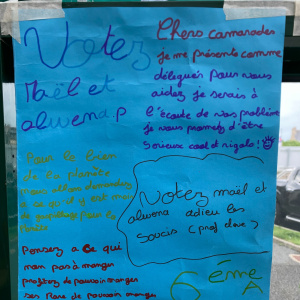 Votez
Maël et
alwena.p
Chers camarades
je me présente comme
délégués pour vous
aidez je serais à
l'écoute de vos problème
je vous promets d'être
serieux cool et rigolo!
Pour le bien
de la planète
nous allons demander
a ce qu'il y est moi
de gaspillage pour la
Votez maël et
alwena adieu les
soucis (prof élève)
Pensez a ce qui
non pas à manger
profitez de pouvoir manger
de pouvoir manger
6 ème A